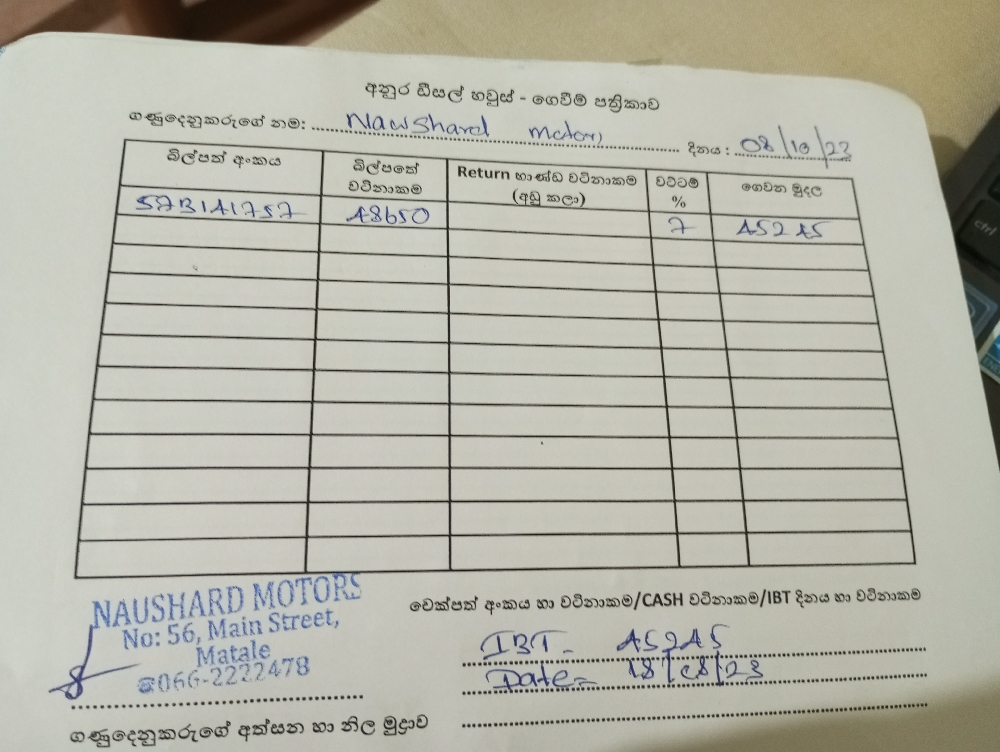 අනුර ඩීසල් හවුස් - ගෙවීම් පත්‍රිකාව
ගණුදෙනුකරුගේ නම: Nawshard motors දිනය: 08/10/23
බිල්පත් අංකය බිල්පතේ වටිනාකම Return භාණ්ඩ වටිනාකම (අඩු කලා) වට්ටම් % ගෙවන මුදල
573141757 48650 7 45245
NAUSHARD MOTORS
No: 56, Main Street,
Matale
☎066-2222478
ගණුදෙනුකරුගේ අත්සන හා නිල මුද්‍රාව
චෙක්පත් අංකය හා වටිනාකම/CASH වටිනාකම/IBT දිනය හා වටිනාකම
IBT - 45245
Date = 18/08/23
ctrl